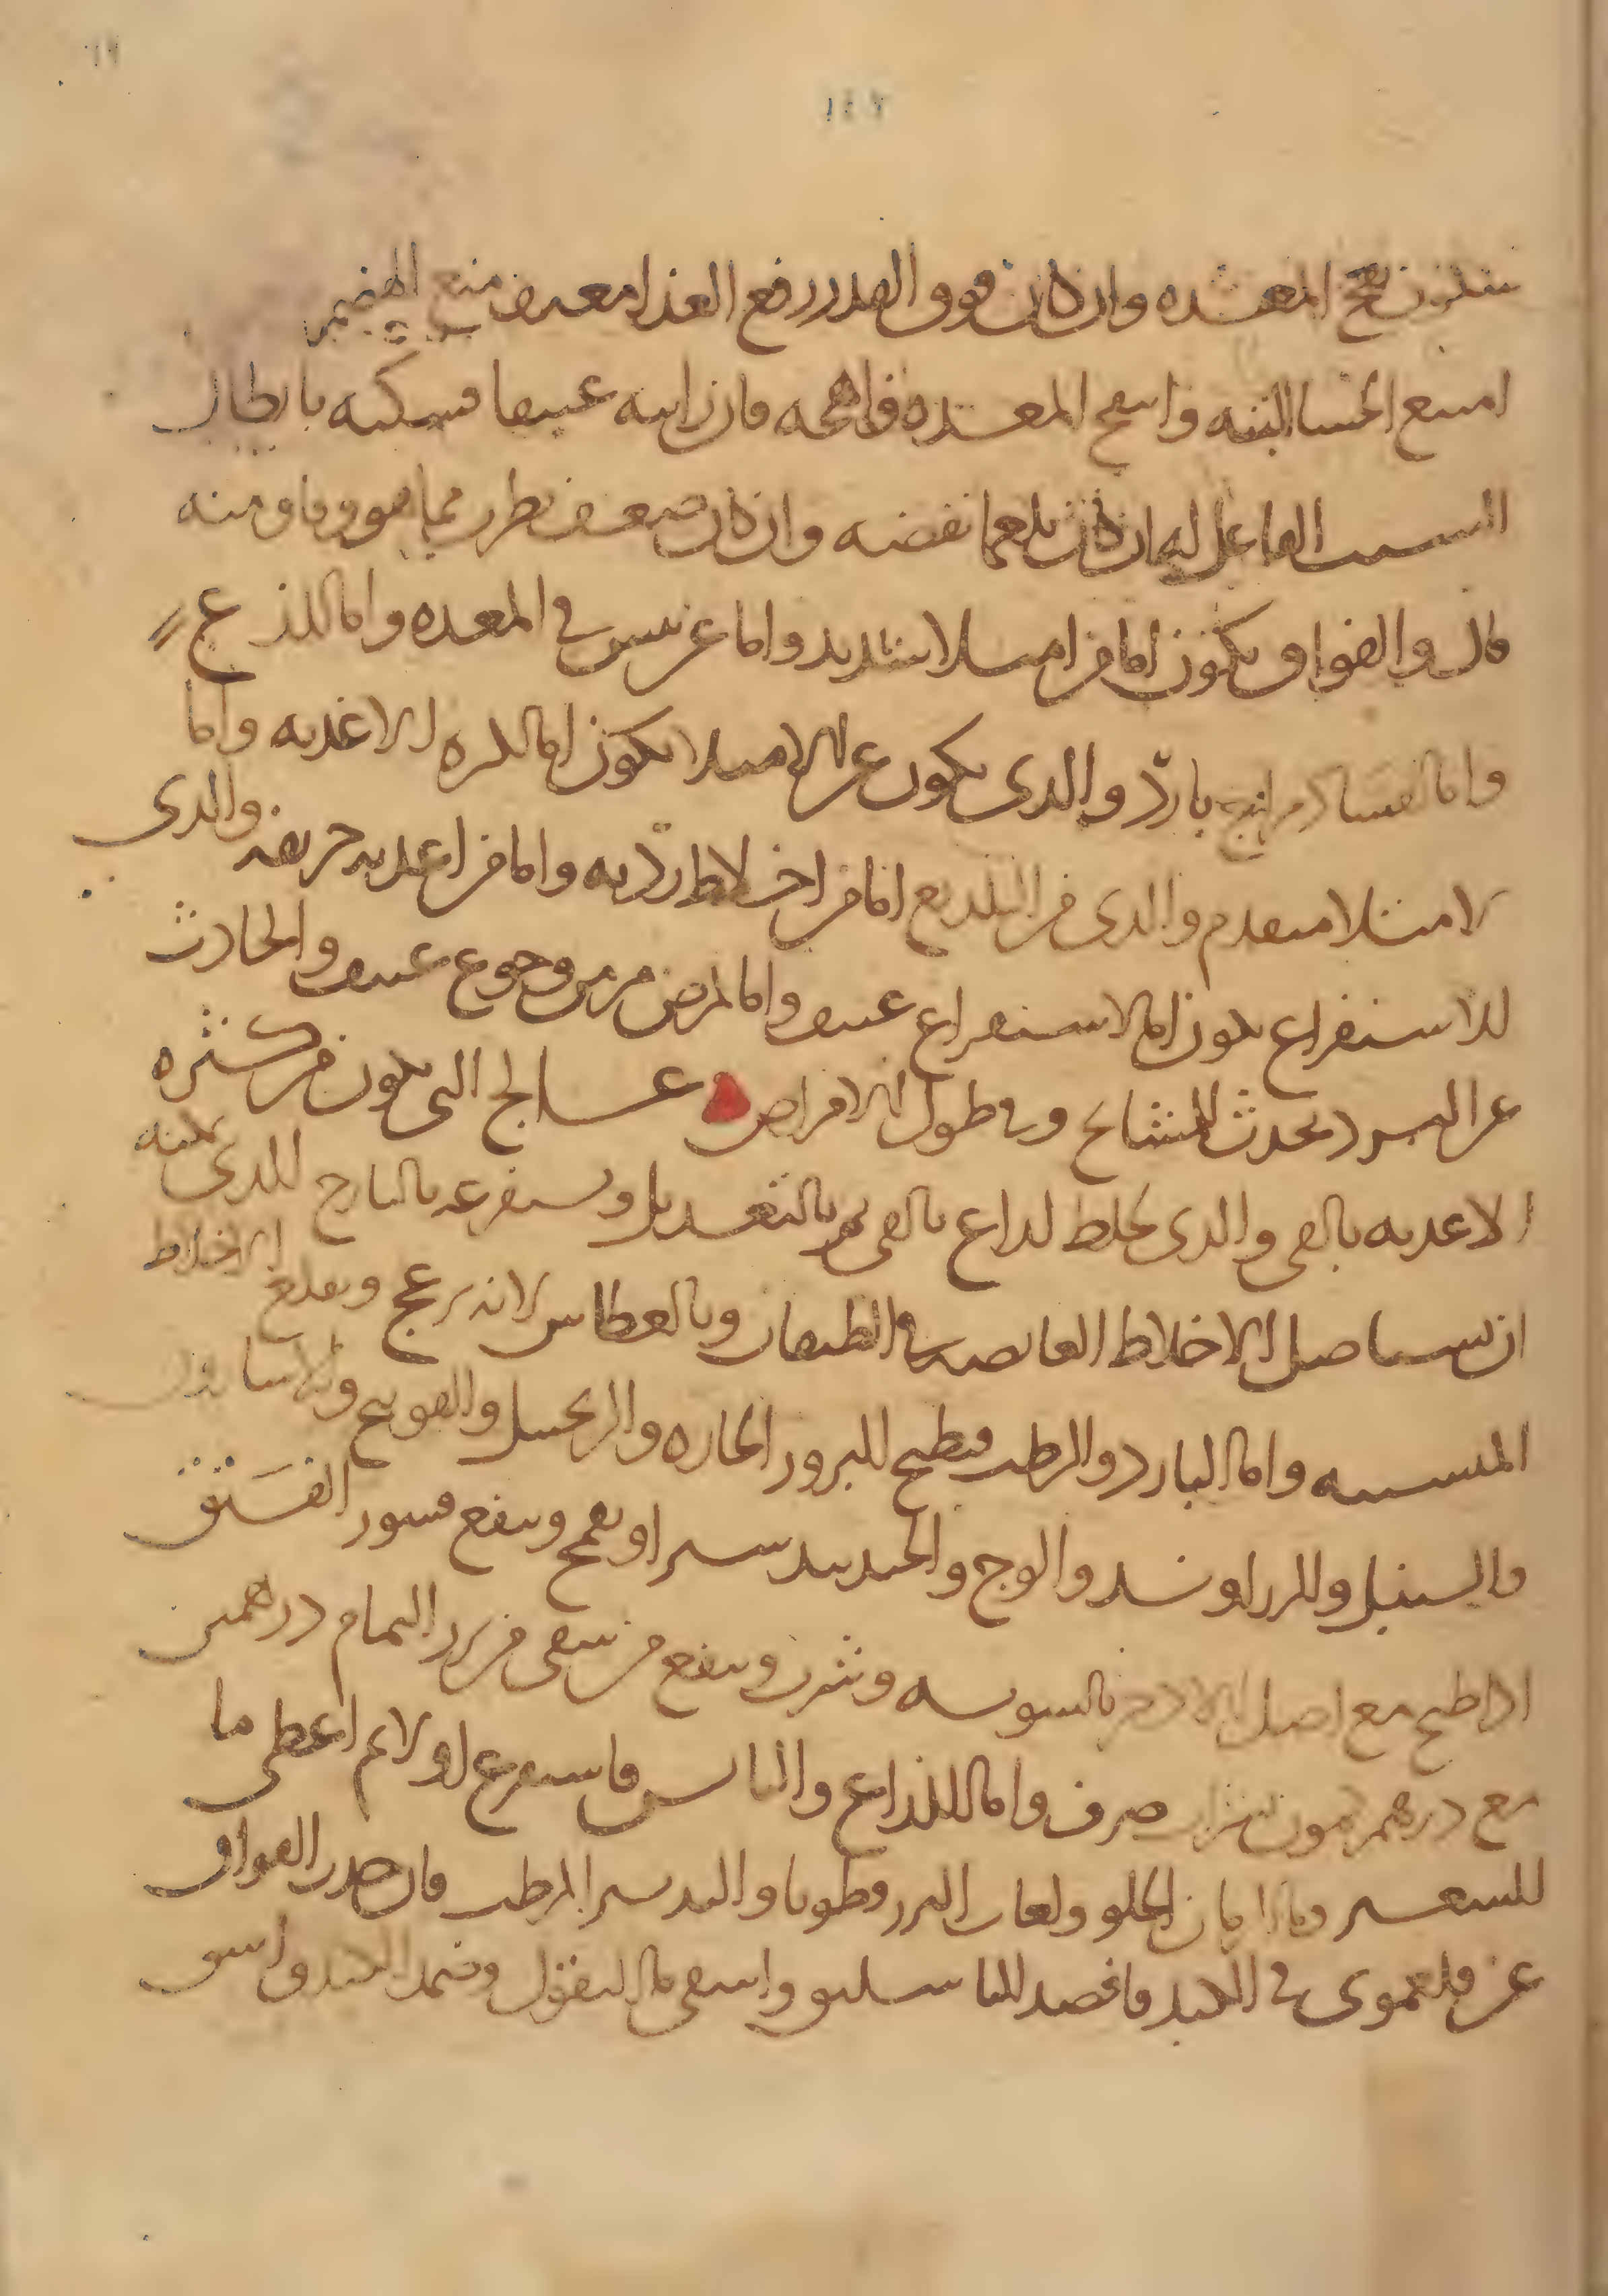 ١٤٦
سكون نفخ المعده وان كان فوق القدر رفع الغذا معه فمنع الهضم
امتنع الجشا البته وانتفخ المعده فان رايته عنيفا فسكنه بابطال
السبب الفاعل له ان كان بلغما نفضه وان كان ضعف نظر مما هو وقاومنه
قال والفواق يكون اما من امتلا شديد واما عن يبس في المعده واما للذع
واما لفساد مزاج بارد والذى يكون عن الامتلا يكون اما لكثره الاغذيه واما
لامتلا متقدم والذى من التلذيع اما من اخلاط رديه واما من اغذيه حريفه والذى
للاستفراغ يكون اما لاستفراغ عنيف واما لمرض مزمن وجوع عنيف والحادث
عن البرد يحدث للمشايخ وفى طول الامراض علاج التى يكون من كثره
الاغذيه بالقى والذى بخلط لذاع بالقى ثم بالتعديل ويستفرغه بالايارج للذى يمكنه
ان يستاصل الاخلاط الغايصه فى الطبقات وبالعطاس لانه يزعج ويقلع الاخلاط
المتشبثه واما البارد والرطب فبطبخ البزور الحاره والزنجبيل والفوتنج والاسارون
والسنبل والزراوند والوج والجندبيدستر او بقمح وينفع قشور الفستق
اذا طبخ مع اصل الاذخر بالسويه وشرب وينفع من يسقى من بزر النمام درهمين
مع درهم كمون بشراب صرف واما للذاع واليابس فاستفرغ اولا ثم اعطى ما
للشعير وما الرمان الحلو ولعاب البزرقطونا والتدبير المرطب فان حدث الفواق
عن فلغمونى فى الكبد فافصد الباسليق واسقى ما البقول وضمد الكبد واسق